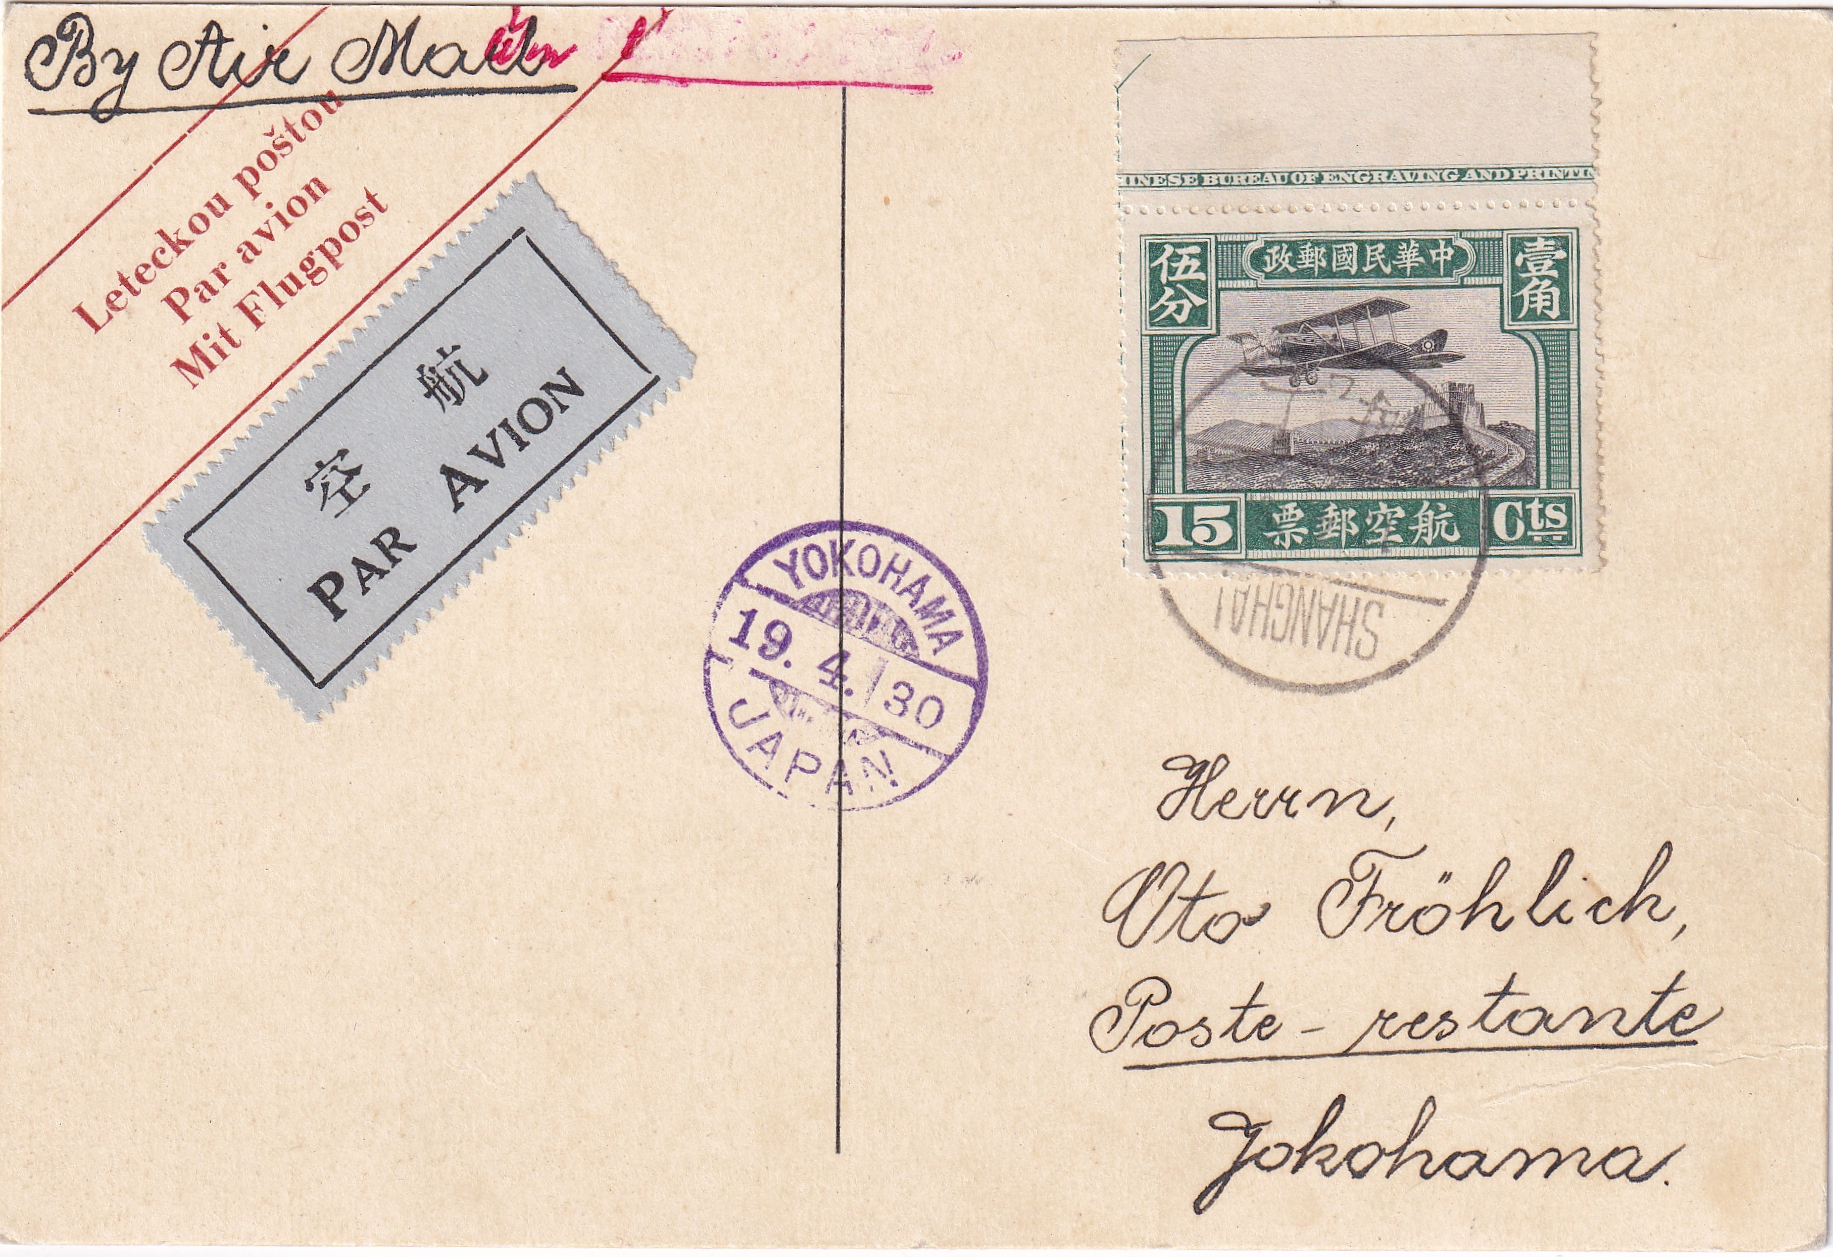 By Air Mail
Leteckou poštou
Par avion
Mit Flugpost
航空
PAR AVION
HINESE BUREAU OF ENGRAVING AND PRINTIN
中華民國郵政
壹角
伍分
15
航空郵票
Cts
SHANGHAI
YOKOHAMA
19. 4. 30
JAPAN
Herrn,
Oto Fröhlich,
Poste-restante
Yokohama.